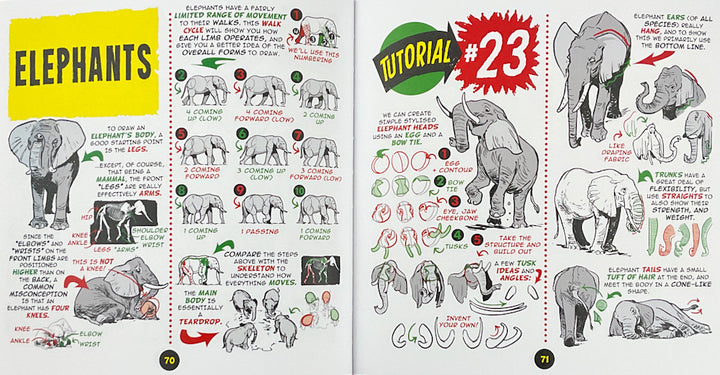 ELEPHANTS
TO DRAW AN
ELEPHANT'S BODY, A
GOOD STARTING POINT
IS THE LEGS.
...EXCEPT, OF COURSE,
THAT BEING A
MAMMAL, THE FRONT
"LEGS" ARE REALLY
EFFECTIVELY ARMS.
HIP
KNEE
ANKLE
SHOULDER
ELBOW
WRIST
LEGS "ARMS"
SINCE THE
"ELBOWS" AND
"WRISTS" ON THE
FRONT LIMBS ARE
POSITIONED
HIGHER THAN ON
THE BACK, A
COMMON
MISCONCEPTION
IS THAT AN
ELEPHANT HAS FOUR
KNEES.
THIS IS NOT
A KNEE!
KNEE
ANKLE
ELBOW
WRIST
ELEPHANTS HAVE A FAIRLY
LIMITED RANGE OF MOVEMENT
TO THEIR WALKS. THIS WALK
CYCLE WILL SHOW YOU HOW
EACH LIMB OPERATES, AND
GIVE YOU A BETTER IDEA OF THE
OVERALL FORMS TO DRAW.
1
WE'LL USE THIS
NUMBERING
2
3
4
4 COMING
UP (LOW)
4 COMING
FORWARD (LOW)
2 COMING
UP
5
6
7
2 COMING
FORWARD
3 COMING
UP (LOW)
3 COMING
FORWARD (LOW)
8
9
10
1 COMING
UP
1 PASSING
1 COMING
FORWARD
COMPARE THE STEPS
ABOVE WITH THE
SKELETON TO
UNDERSTAND HOW
EVERYTHING MOVES.
THE MAIN
BODY IS
ESSENTIALLY
A
TEARDROP.
70
TUTORIAL
#23
WE CAN CREATE
SIMPLE STYLISED
ELEPHANT HEADS
USING AN EGG AND A
BOW TIE.
1
EGG
+ CONTOUR
2
BOW
TIE
3
EYE, JAW
CHEEKBONE
4
TUSKS
5
TAKE THE
STRUCTURE AND
BUILD OUT
A FEW TUSK
IDEAS AND
ANGLES:
INVENT
YOUR OWN!
ELEPHANT EARS (OF ALL
SPECIES) REALLY
HANG, AND TO SHOW
THIS WE PRIMARILY USE
THE BOTTOM LINE.
LIKE
DRAPING
FABRIC
TRUNKS HAVE A
GREAT DEAL OF
FLEXIBILITY, BUT
USE STRAIGHTS TO
ALSO SHOW THEIR
STRENGTH, AND
WEIGHT.
ELEPHANT TAILS HAVE A SMALL
TUFT OF HAIR AT THE END, AND
MEET THE BODY IN A CONE-LIKE
SHAPE.
71